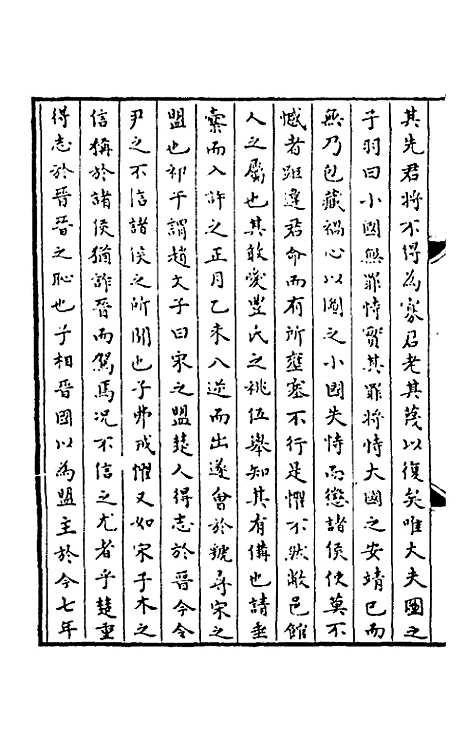 其先君將不得為寡君老其蔑以復矣唯大夫圖之
子羽曰小國無罪恃實其罪將恃大國之安靖已而
無乃包藏禍心以圖之小國失恃而懲諸侯使莫不
憾者距違君命而有所壅塞不行是懼不然敝邑館
人之屬也其敢愛豐氏之祧伍舉知其有備也請垂
櫜而入許之正月乙未入逆而出遂會於虢尋宋之
盟也祁午謂趙文子曰宋之盟楚人得志於晉今令
尹之不信諸侯之所聞也子弗戒懼又如宋子木之
信稱於諸侯猶詐晉而駕焉况不信之尤者乎楚重
得志於晉晉之恥也子相晉國以為盟主於今七年